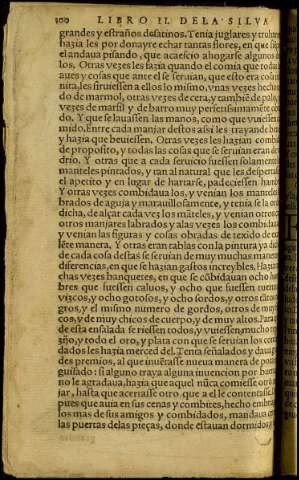 300 LIBRO II. DE LA SILVA
grandes y estraños desatinos. Tenia juglares y truhanes
hazia les por donayre echar tantas flores, en que
el andaua pisando, que acaescio ahogarse algunos de
los. Otras vezes les fazia quando el comia que todas
aues y cosas que ante el se seruian, que esto era cosa in
nita, les siruiessen a ellos lo mismo, vnas vezes hecho
do de marmol, otras vezes de cera, y tambiē de palo,
vezes de marfil y de barro muy perfectissimamēte co
do. Y que se lauassen las manos, como que vuiessen co
mido. Entre cada manjar destos assi les trayan de beuer
y hazia que beuiessen. Otras vezes les hazian combite
de proposito, y todas las cosas que se seruian eran de
drio. Y otras que a cada seruicio fuessen solamente
manteles pintados, y tan al natural que les despertasse
el apetito y en lugar de hartarse, padeciessen hambre
Y otras vezes combidaua los, y venian los manteles
brados de aguja y marauillosamente, y tenia se la or
dicha, de alçar cada vez los māteles, y venian otros cō
otros manjares labrados y alas vezes los combidaua
y venian las figuras y cosas obradas de texido de ex
lēte manera. Y otras eran tablas con la pintura ya dicha
de cada cosa destas se seruian de muy muchas maneras
diferencias, en que se hazian gastos increybles. Hazia
chas vezes banquetes, en que se cōbidauan ocho hom
bres que fuessen caluos, y ocho que fuessen tuertos
vizcos, y ocho gotosos, y ocho sordos, y otros tātos ne
gros, y el mismo numero de gordos, otros de muy
cos, y de muy chicos de cuerpo, y de muy altos. Para q
de esta ensalada se riessen todos, y vuiessen mucho re
zijo, y todo el oro, y plata con que se seruian los com
dados les hazia merced del. Tenia señalados y dauan
des premios, al que inuētasse nueua manera de potaje
guisado: si alguno traya alguna inuencion por buena
no le agradaua, hazia que aquel nūca comiesse otro mā
jar, hasta que acertasse otro que a el le contentasse.
pues que auia en sus cenas y combites, hecho embria
los mas de sus amigos y combidados, mandaua cerrar
las puertas delas pieças, donde estauan dormidos, y